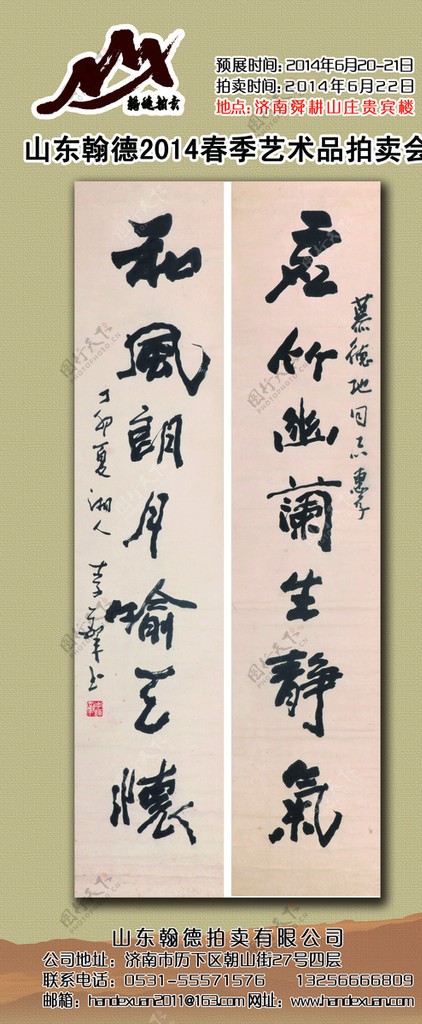 翰德拍卖
预展时间: 2014年6月20-21日
拍卖时间: 2014年6月22日
地点: 济南舜耕山庄贵宾楼
山东翰德2014春季艺术品拍卖会
慕德地同志惠存
虚竹幽蘭生静氣
和風朗月喻天懷
丁卯夏湘人李
山东翰德拍卖有限公司
公司地址: 济南市历下区朝山街27号四层
联系电话: 0531-55571576 13256666809
邮箱: handexuan2011@163.com 网址: www.handexuan.com